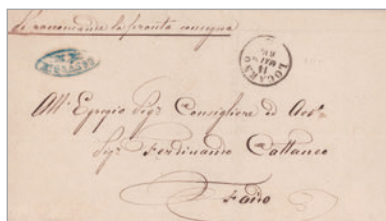 Si raccomanda la pronta consegna
LOCARNO
14
All' Egregio Sigr Consigliere di
Sigr Ferdinando Cattaneo
Faido